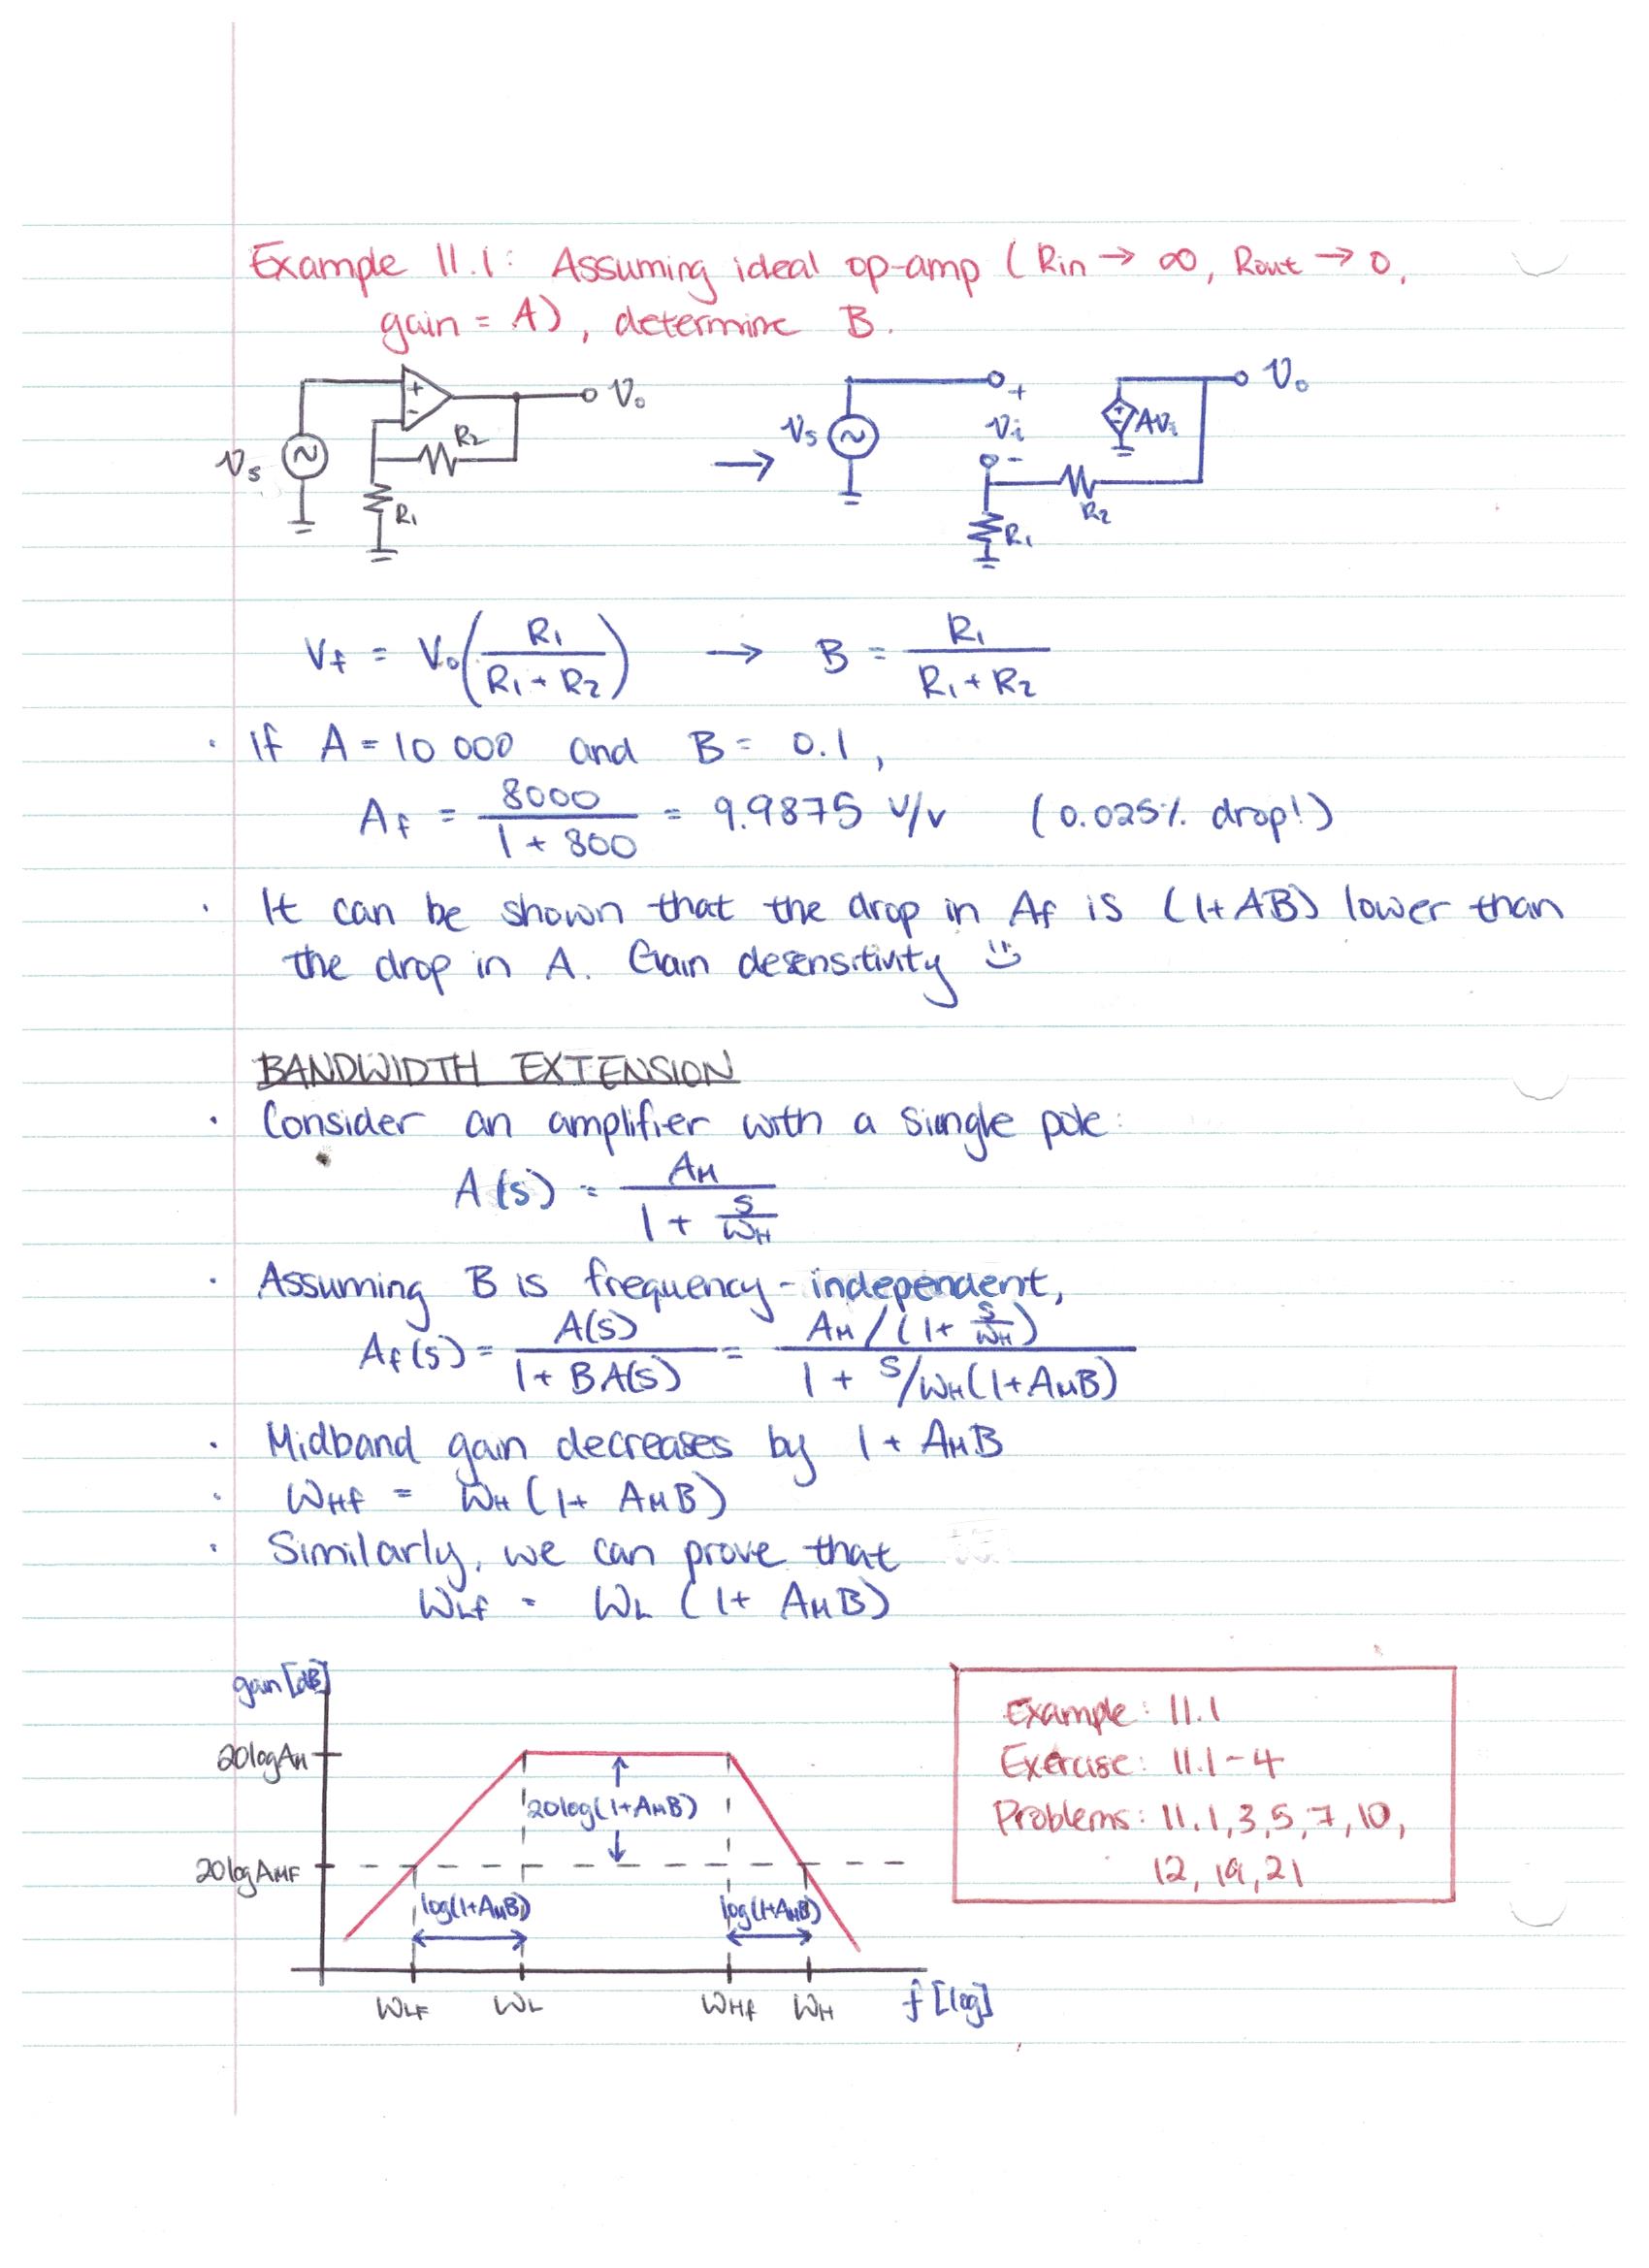 Example 11.1: Assuming ideal op-amp (Rin → ∞, Rout → 0,
gain = A), determine B.
Vs + - R2 R1 Vo → Vs + Vi - AVi R2 R1 Vo
Vf = Vo(R1/(R1 + R2)) → B = R1/(R1 + R2)
· If A = 10 000 and B = 0.1,
Af = 8000/(1 + 800) = 9.9875 V/V (0.025% drop!)
· It can be shown that the drop in Af is (1+AB) lower than
the drop in A. Gain desensitivity
BANDWIDTH EXTENSION
· Consider an amplifier with a single pole:
A(s) = AM/(1 + s/ωH)
· Assuming B is frequency-independent,
Af(s) = A(s)/(1 + BA(s)) = AM/(1+ s/ωH)/(1 + s/ωH(1+AMB))
· Midband gain decreases by 1 + AMB
· ωHf = ωH (1+ AMB)
· Similarly, we can prove that
ωLf = ωL (1+ AMB)
gain [dB]
20logAM
20log(1+AMB)
20logAMF
log(1+AMB) log(1+AMB)
ωLF ωL ωHf ωH f [log]
Example: 11.1
Exercise: 11.1-4
Problems: 11.1,3,5,7,10,
12, 19,21